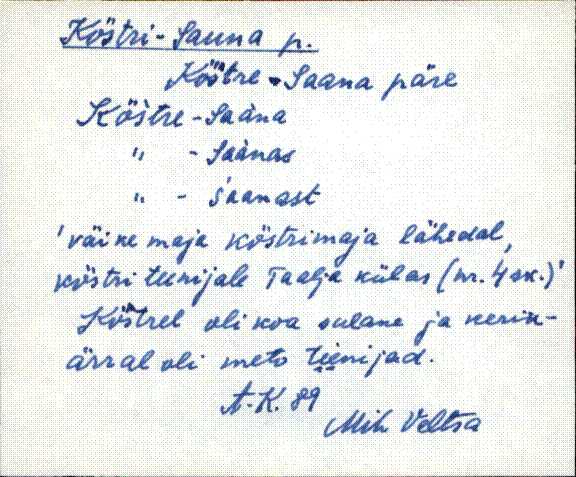 Köstri-Sauna p.
Köstre-Saana päre
Köstre-Saàna
" - Saànas
" - Saanast
'väine maja köstrimaja lähedal,
köstri teenijale Taalja külas (nr. 4 sk.)'
Köstrel oli koa sulane ja
ärral oli meto tienijad.
A.K. 89
Mih Veltsa